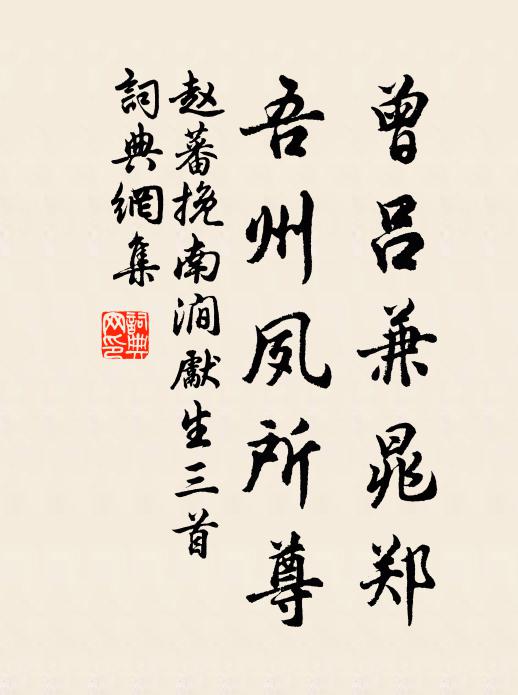 曾吕兼晁郑
吾州夙所尊
赵蕃挽南澗獻生三首
詞典網集
詞典网印